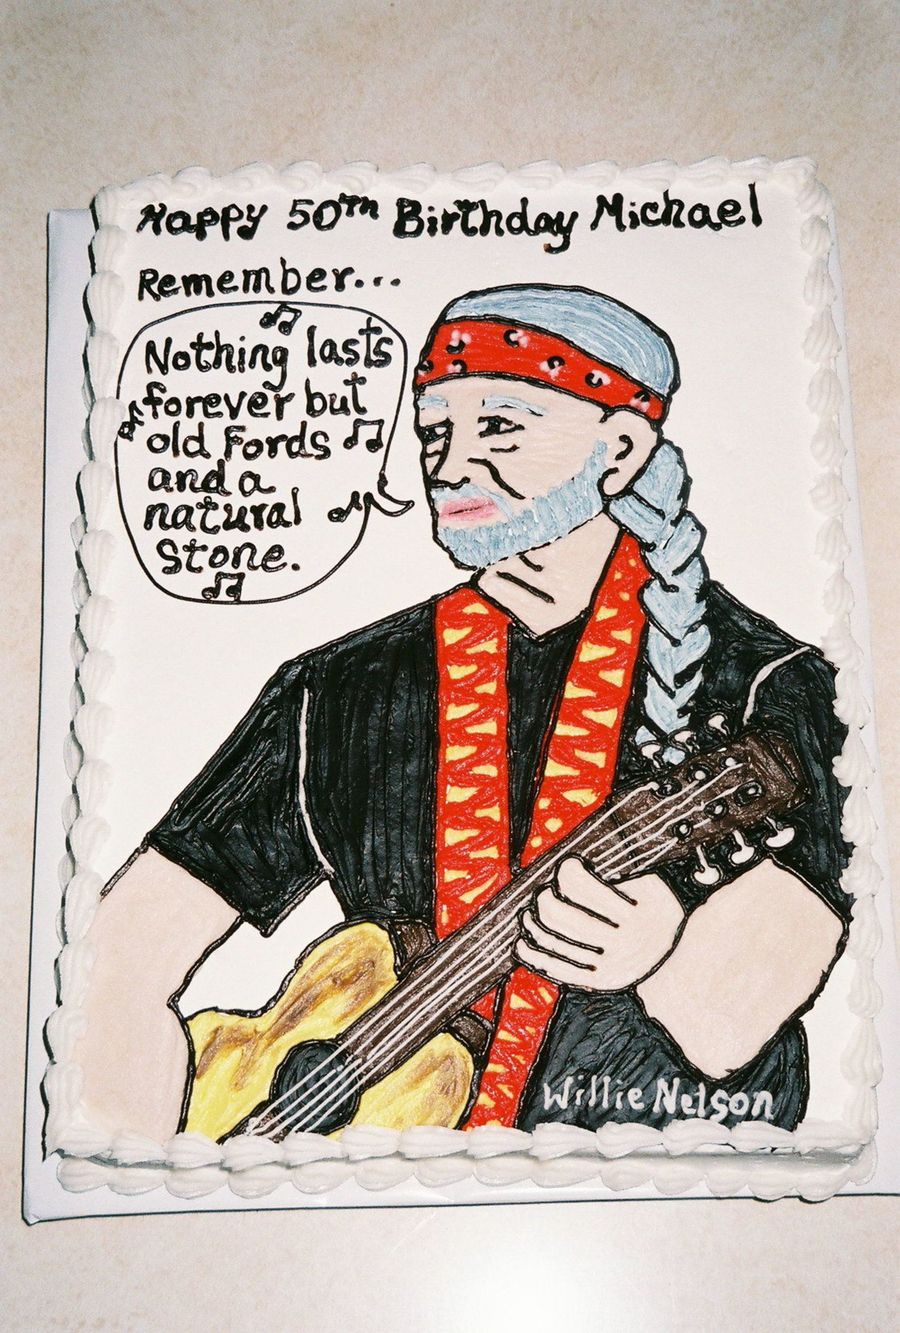 Happy 50th Birthday Michael
Remember...
Nothing lasts
forever but
old Fords
and a
natural
Stone.
Willie Nelson